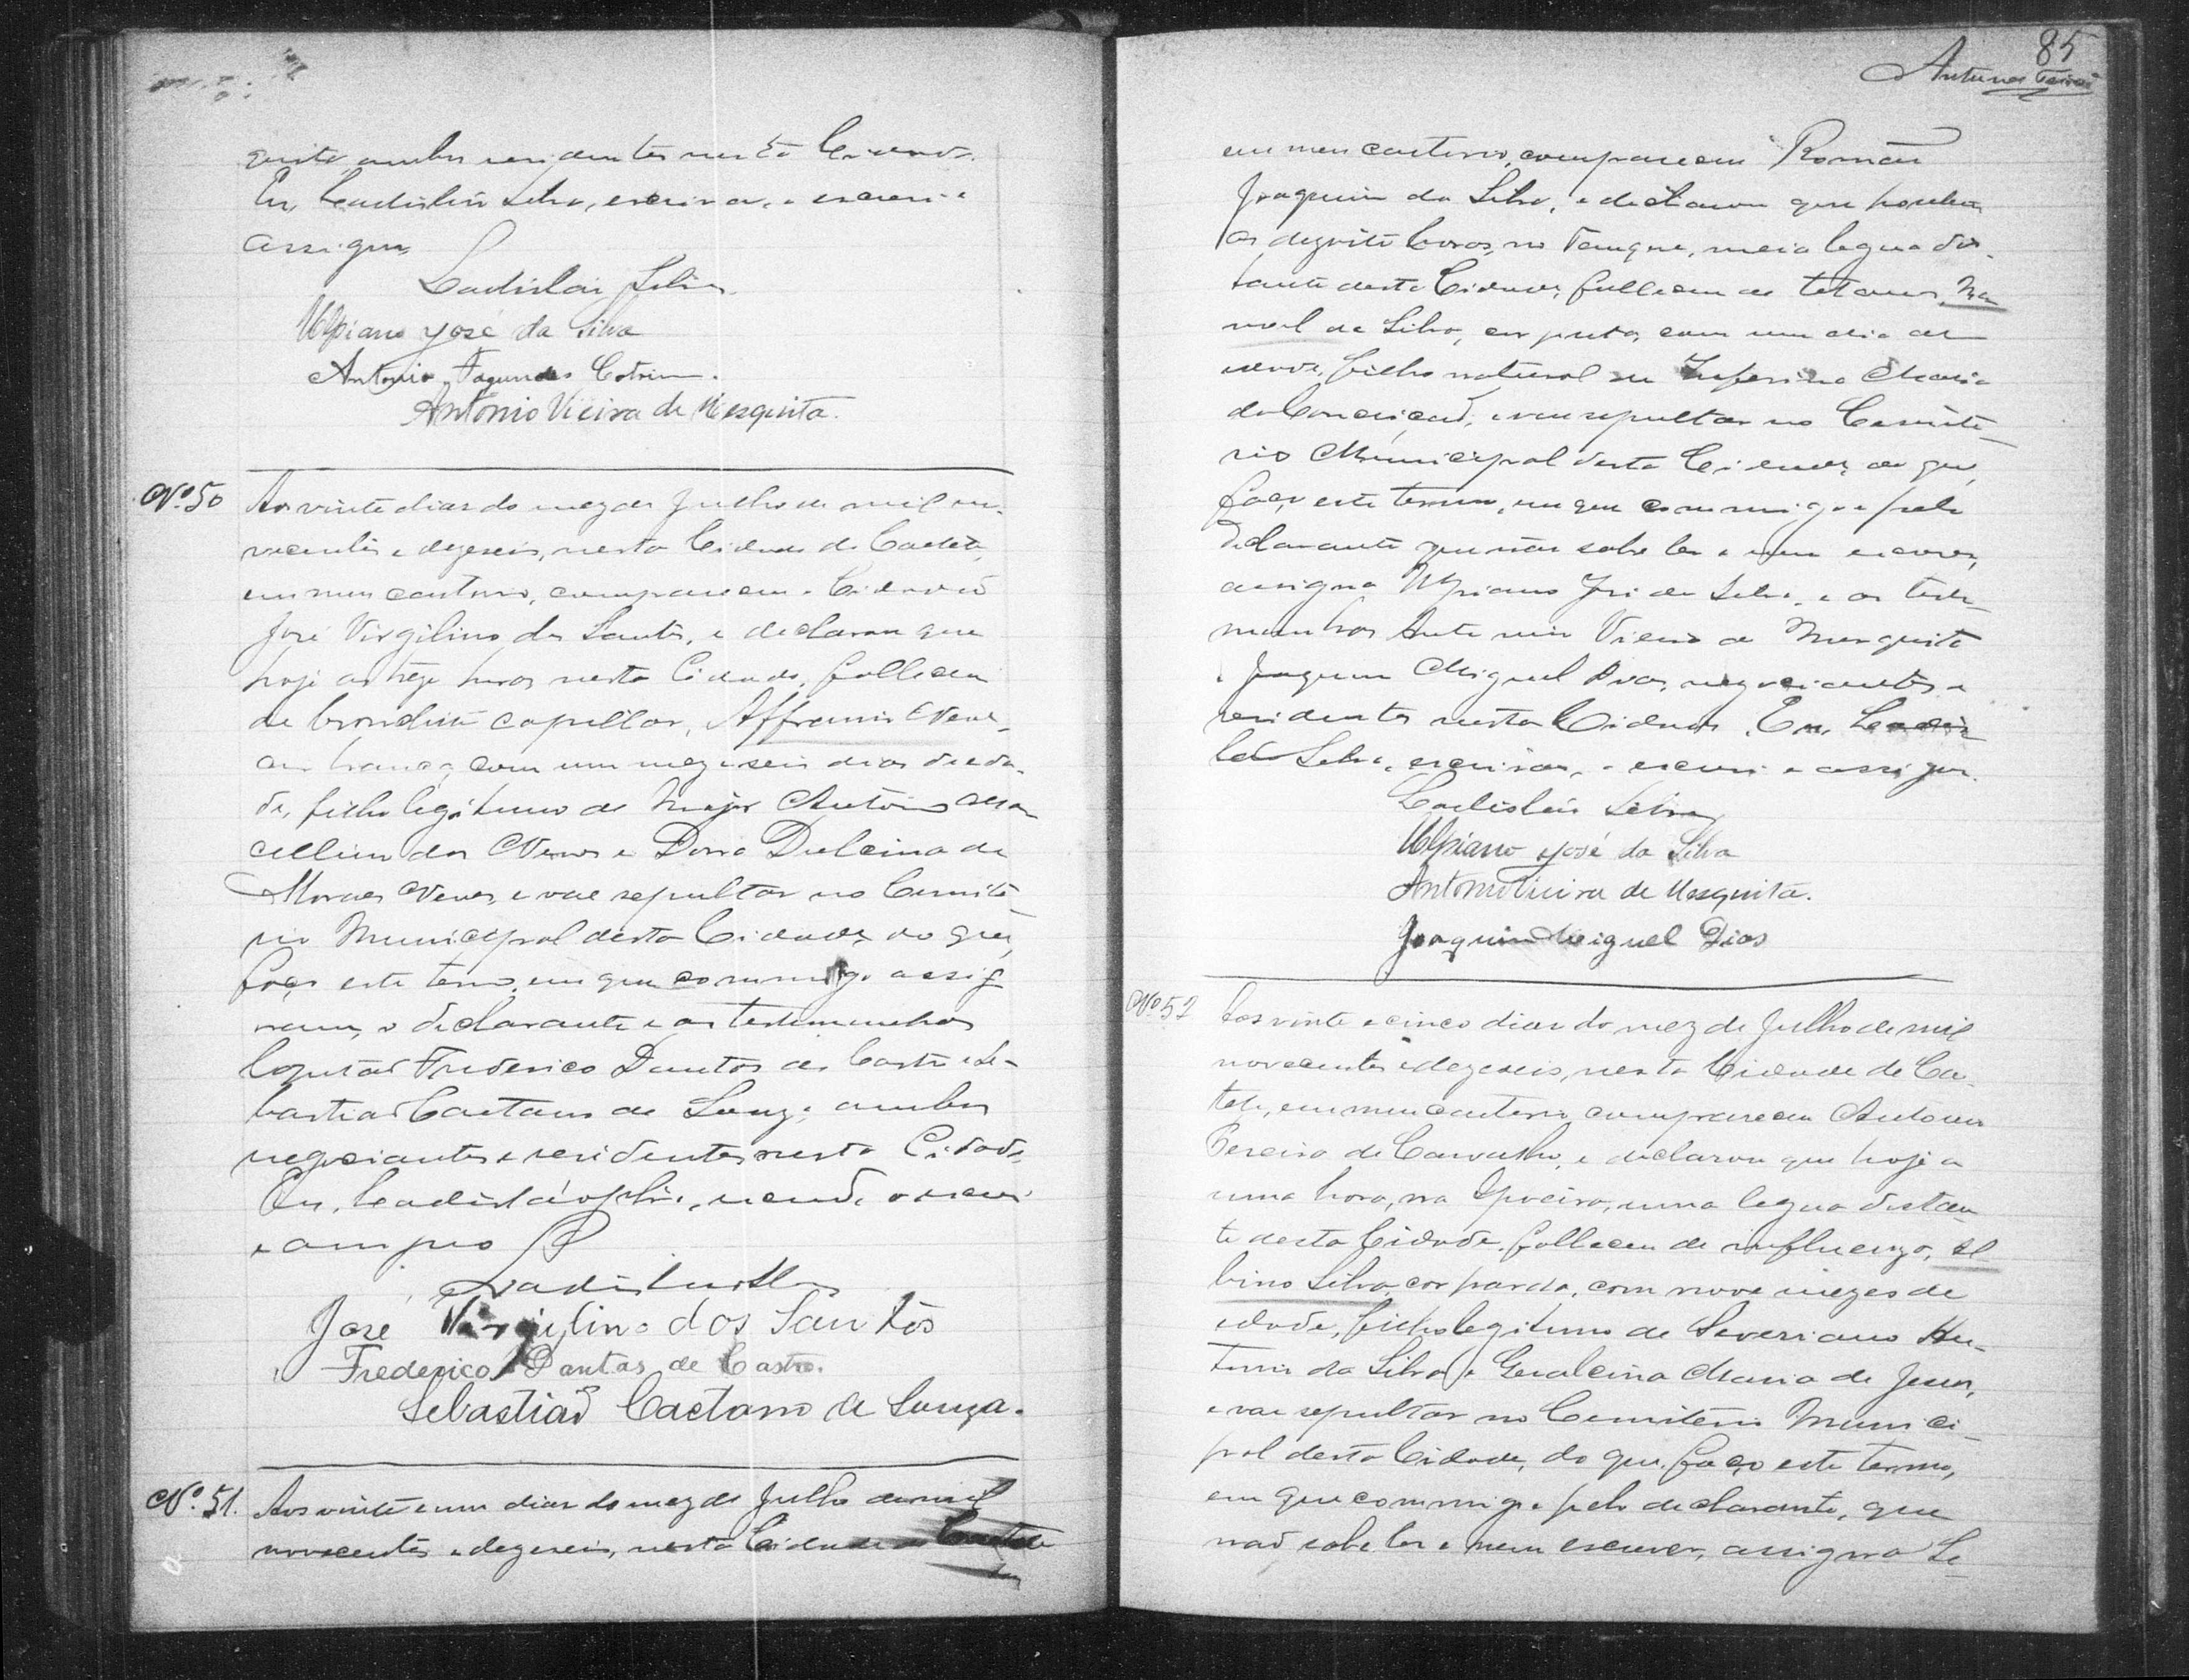 quita, ambos residentes nesta Cidade.
Eu, Ladisláu Silva, escrivão, o escrevi e
assigno.
Ladislau Silva
Ulpiano José da Silva
Antonio Fagundes Cotrim.
Antonio Vieira de Mesquita.
Nº 50 Aos vinte dias do mez de Julho de mil no-
vecentos e dezeseis, nesta Cidade de Caeteté,
em meu cartorio, compareceu o Cidadão
José Virgilino dos Santos, e declarou que
hoje as treze horas nesta Cidade, falleceu
de bronchite capillar, Affranio Neve,
cor branca, com um mez e seis dias de eda-
de, filho legitimo do Major Antonio Mar
cellino das Neves e Dona Dulcina de
Moraes Neves, e vae sepultar no Cemite
rio Municipal desta Cidade, do que,
faço este termo, em que commigo assig
nam, o declarante e as testemunhas
Capitão Frederico Dantas de Castro e Se-
bastião Caetano de Souza, ambos
negociantes e residentes nesta Cidade.
Eu, Ladisláo Silva, o escrevi
e assigno
Ladislau Silva
José Virgilino dos Santos
Frederico Dantas de Castro.
Sebastião Caetano de Souza.
Nº 51. Aos vinte e um dias do mez de Julho de mil
novecentos e dezeseis, nesta Cidade de Caeteté
85
Antunes
em meu cartorio, compareceu Romão
Joaquim da Silva, e declarou que hontem
as dezoito horas, no Tanque, meia legua dis-
tante desta Cidade, falleceu de tetanos, Ma
noel da Silva, cor preta, com um dia de
nascido, filho natural de Maria
da Conceição, e vae sepultar no Cemite
rio Municipal desta Cidade, do que,
faço este termo, em que commigo e pelo
declarante que não sabe ler e nem escrever,
assigna Ulpiano José da Silva, e as teste-
munhas Antonio Vieira de Mesquita
e Joaquim Miguel Dias, negociantes e
residentes nesta Cidade. Eu, Ladis
láo Silva, escrivão, o escrevi e assigno.
Ladisláu Silva
Ulpiano José da Silva
Antonio Vieira de Mesquita.
Joaquim Miguel Dias
Nº 52 Aos vinte e cinco dias do mez de Julho de mil
novecentos e dezeseis, nesta Cidade de Cae-
teté, em meu cartorio compareceu Antonio
Pereira de Carvalho, e declarou que hoje a
uma hora, na Ipoeira, uma legua distan
te desta Cidade, falleceu de influenza, Al
bino Silva, cor parda, com nove mezes de
edade, filho legitimo de Severiano An-
tonio da Silva e Gualcina Maria de Jesus,
e vae sepultar no Cemiterio Munici-
pal desta Cidade, do que, faço este termo,
em que commigo e pelo declarante, que
não sabe ler e nem escrever, assigna Se